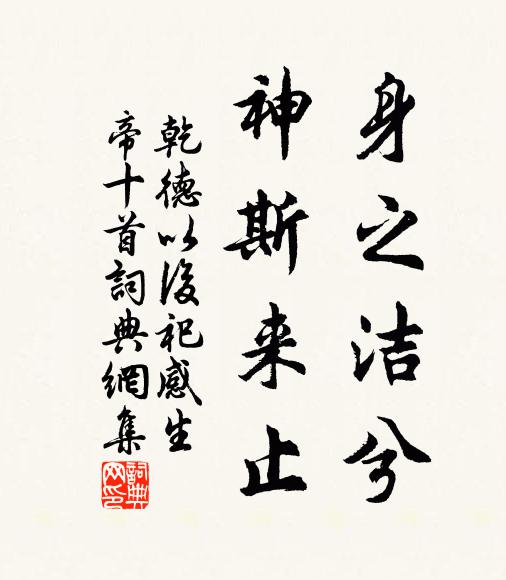 身之洁兮
神斯来止
乾德以後祀感生
帝十首詞典網集
詞典网印